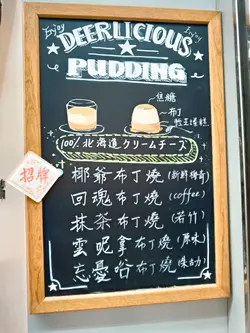 Enjoy
Enjoy
DEERLICIOUS
PUDDING
焦糖
布丁
100% 北海道クリームチーズ
招牌
椰爺布丁燒 (新鮮椰香)
回魂布丁燒 (coffee)
抹茶布丁燒 (若竹)
雲呢拿布丁燒 (原味)
忘憂谷布丁燒 (朱古力)